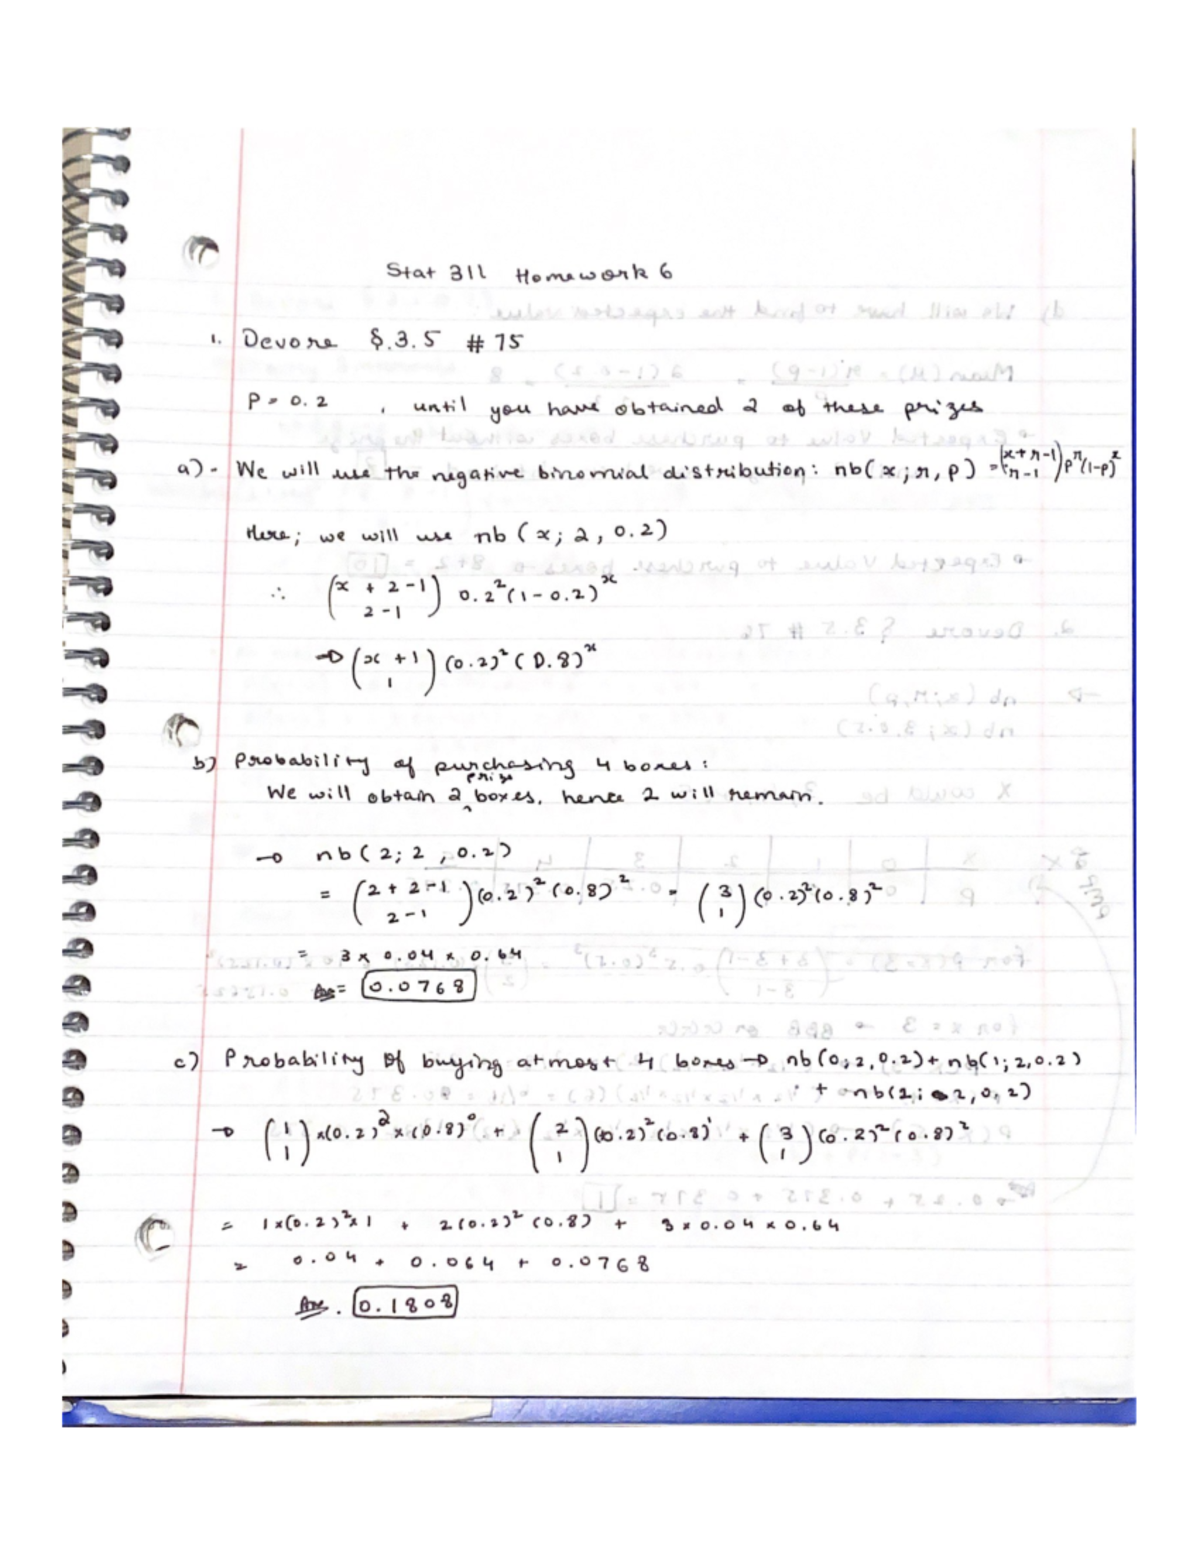 Stat 311 Homework 6
1. Devore §.3.5 # 75
P = 0.2 , until you have obtained 2 of these prizes
a) - We will use the negative binomial distribution: nb(x; r, p) = (x+r-1 r-1) p^r (1-p)^x
Here; we will use nb(x; 2, 0.2)
∴ (x + 2-1 2-1) 0.2² (1-0.2)^x
→ (x+1 1) (0.2)² (0.8)^x
b) Probability of purchasing 4 boxes:
We will obtain 2 prize boxes, hence 2 will remain.
→ nb(2; 2, 0.2)
= (2+2-1 2-1) (0.2)² (0.8)² = (3 1) (0.2)² (0.8)²
= 3 x 0.04 x 0.64
Ans = 0.0768
c) Probability of buying atmost 4 boxes → nb(0; 2, 0.2) + nb(1; 2, 0.2)
+ nb(2; 2, 0.2)
→ (1 1) x (0.2)² x (0.8)⁰ + (2 1) (0.2)² (0.8)¹ + (3 1) (0.2)² (0.8)²
= 1x(0.2)²x1 + 2(0.2)² (0.8) + 3 x 0.04 x 0.64
= 0.04 + 0.064 + 0.0768
Ans. 0.1808